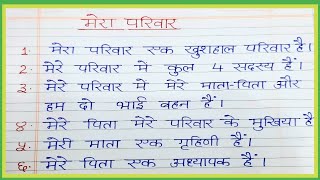 मेरा परिवार
१. मेरा परिवार एक खुशहाल परिवार है।
२. मेरे परिवार मे कुल 4 सदस्य हैं।
३. मेरे परिवार में मेरे माता-पिता और
हम दो भाई बहन हैं।
४. मेरे पिता मेरे परिवार के मुखिया है
५. मेरी माता एक गृहिणी हैं।
६. मेरे पिता एक अध्यापक हैं।